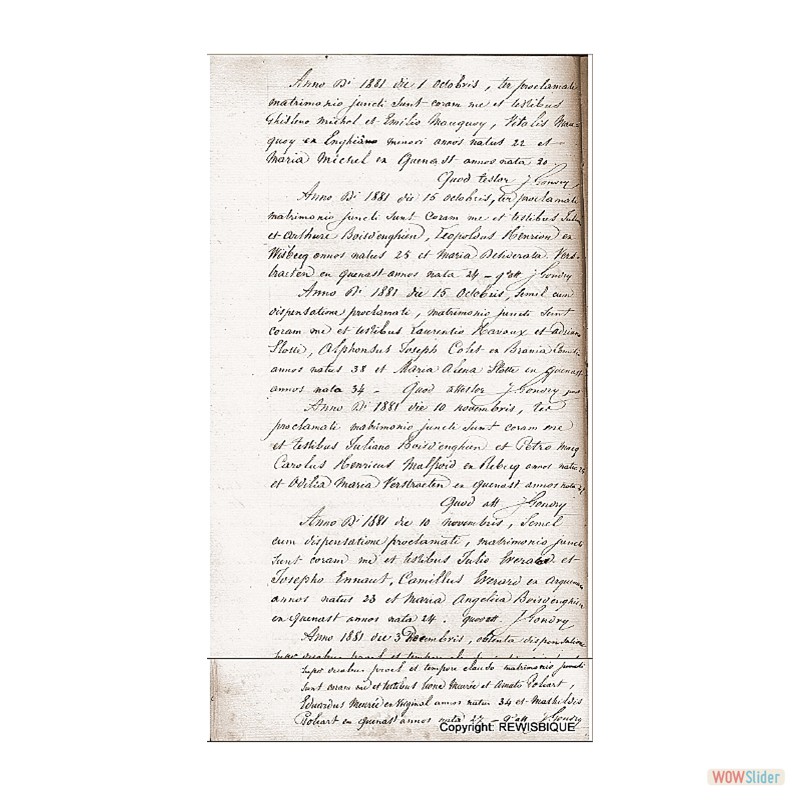 Anno Di 1881 die 1 octobris, ter proclamati
matrimonio juncti sunt coram me et testibus
Ghisleno Michel et Emilio Mauquoy, Vitalis Mau-
quoy en Enghien menori annos natus 22 et
Maria Michel en Quenast annos nata 20
Quod testor J Gondry
Anno Di 1881 die 15 octobris, ter proclamati
matrimonio juncti sunt coram me et testibus
et Arthuro Boisd'enghien, Leopoldus Henrion en
Wisbecq annos natus 25 et Maria Desiderata Vers-
traeten en Quenast annos nata 24 - q. att J Gondry
Anno Di 1881 die 15 octobris, semel cum
dispensatione proclamati, matrimonio juncti sunt
coram me et testibus Laurentio Havaux et Adriano
Slotte, Alphonsus Joseph Colet en Brania
annos natus 38 et Maria Alena Slotte en Quenast
annos nata 34 - Quod attestor J. Gondry
Anno Di 1881 die 10 novembris, ter
proclamati matrimonio juncti sunt coram me
et testibus Juliano Boisd'enghien et Petro
Carolus Henricus Malfroid en Rebecq annos natus
et Odilia Maria Verstraeten en Quenast annos nata
Quod att J Gondry
Anno Di 1881 die 10 novembris, semel
cum dispensatione proclamati, matrimonio juncti
sunt coram me et testibus Julio Everard et
Josepho Ennaut, Camillus Everard en
annos natus 23 et Maria Angelica Boisd'enghien
en Quenast annos nata 24. quod att. J Gondry
Anno 1881 die 3 Decembris, obtenta dispensatione
super duabus procl et tempore clauso matrimonio juncti
sunt coram me et testibus Leone Meurée et Amato Poliart,
Eduardus Meurée en Virginal annos natus 34 et Mathildis
Poliart en Quenast annos nata 27 - q. att J. Gondry
Copyright: REWISBIQUE
WOWSlider